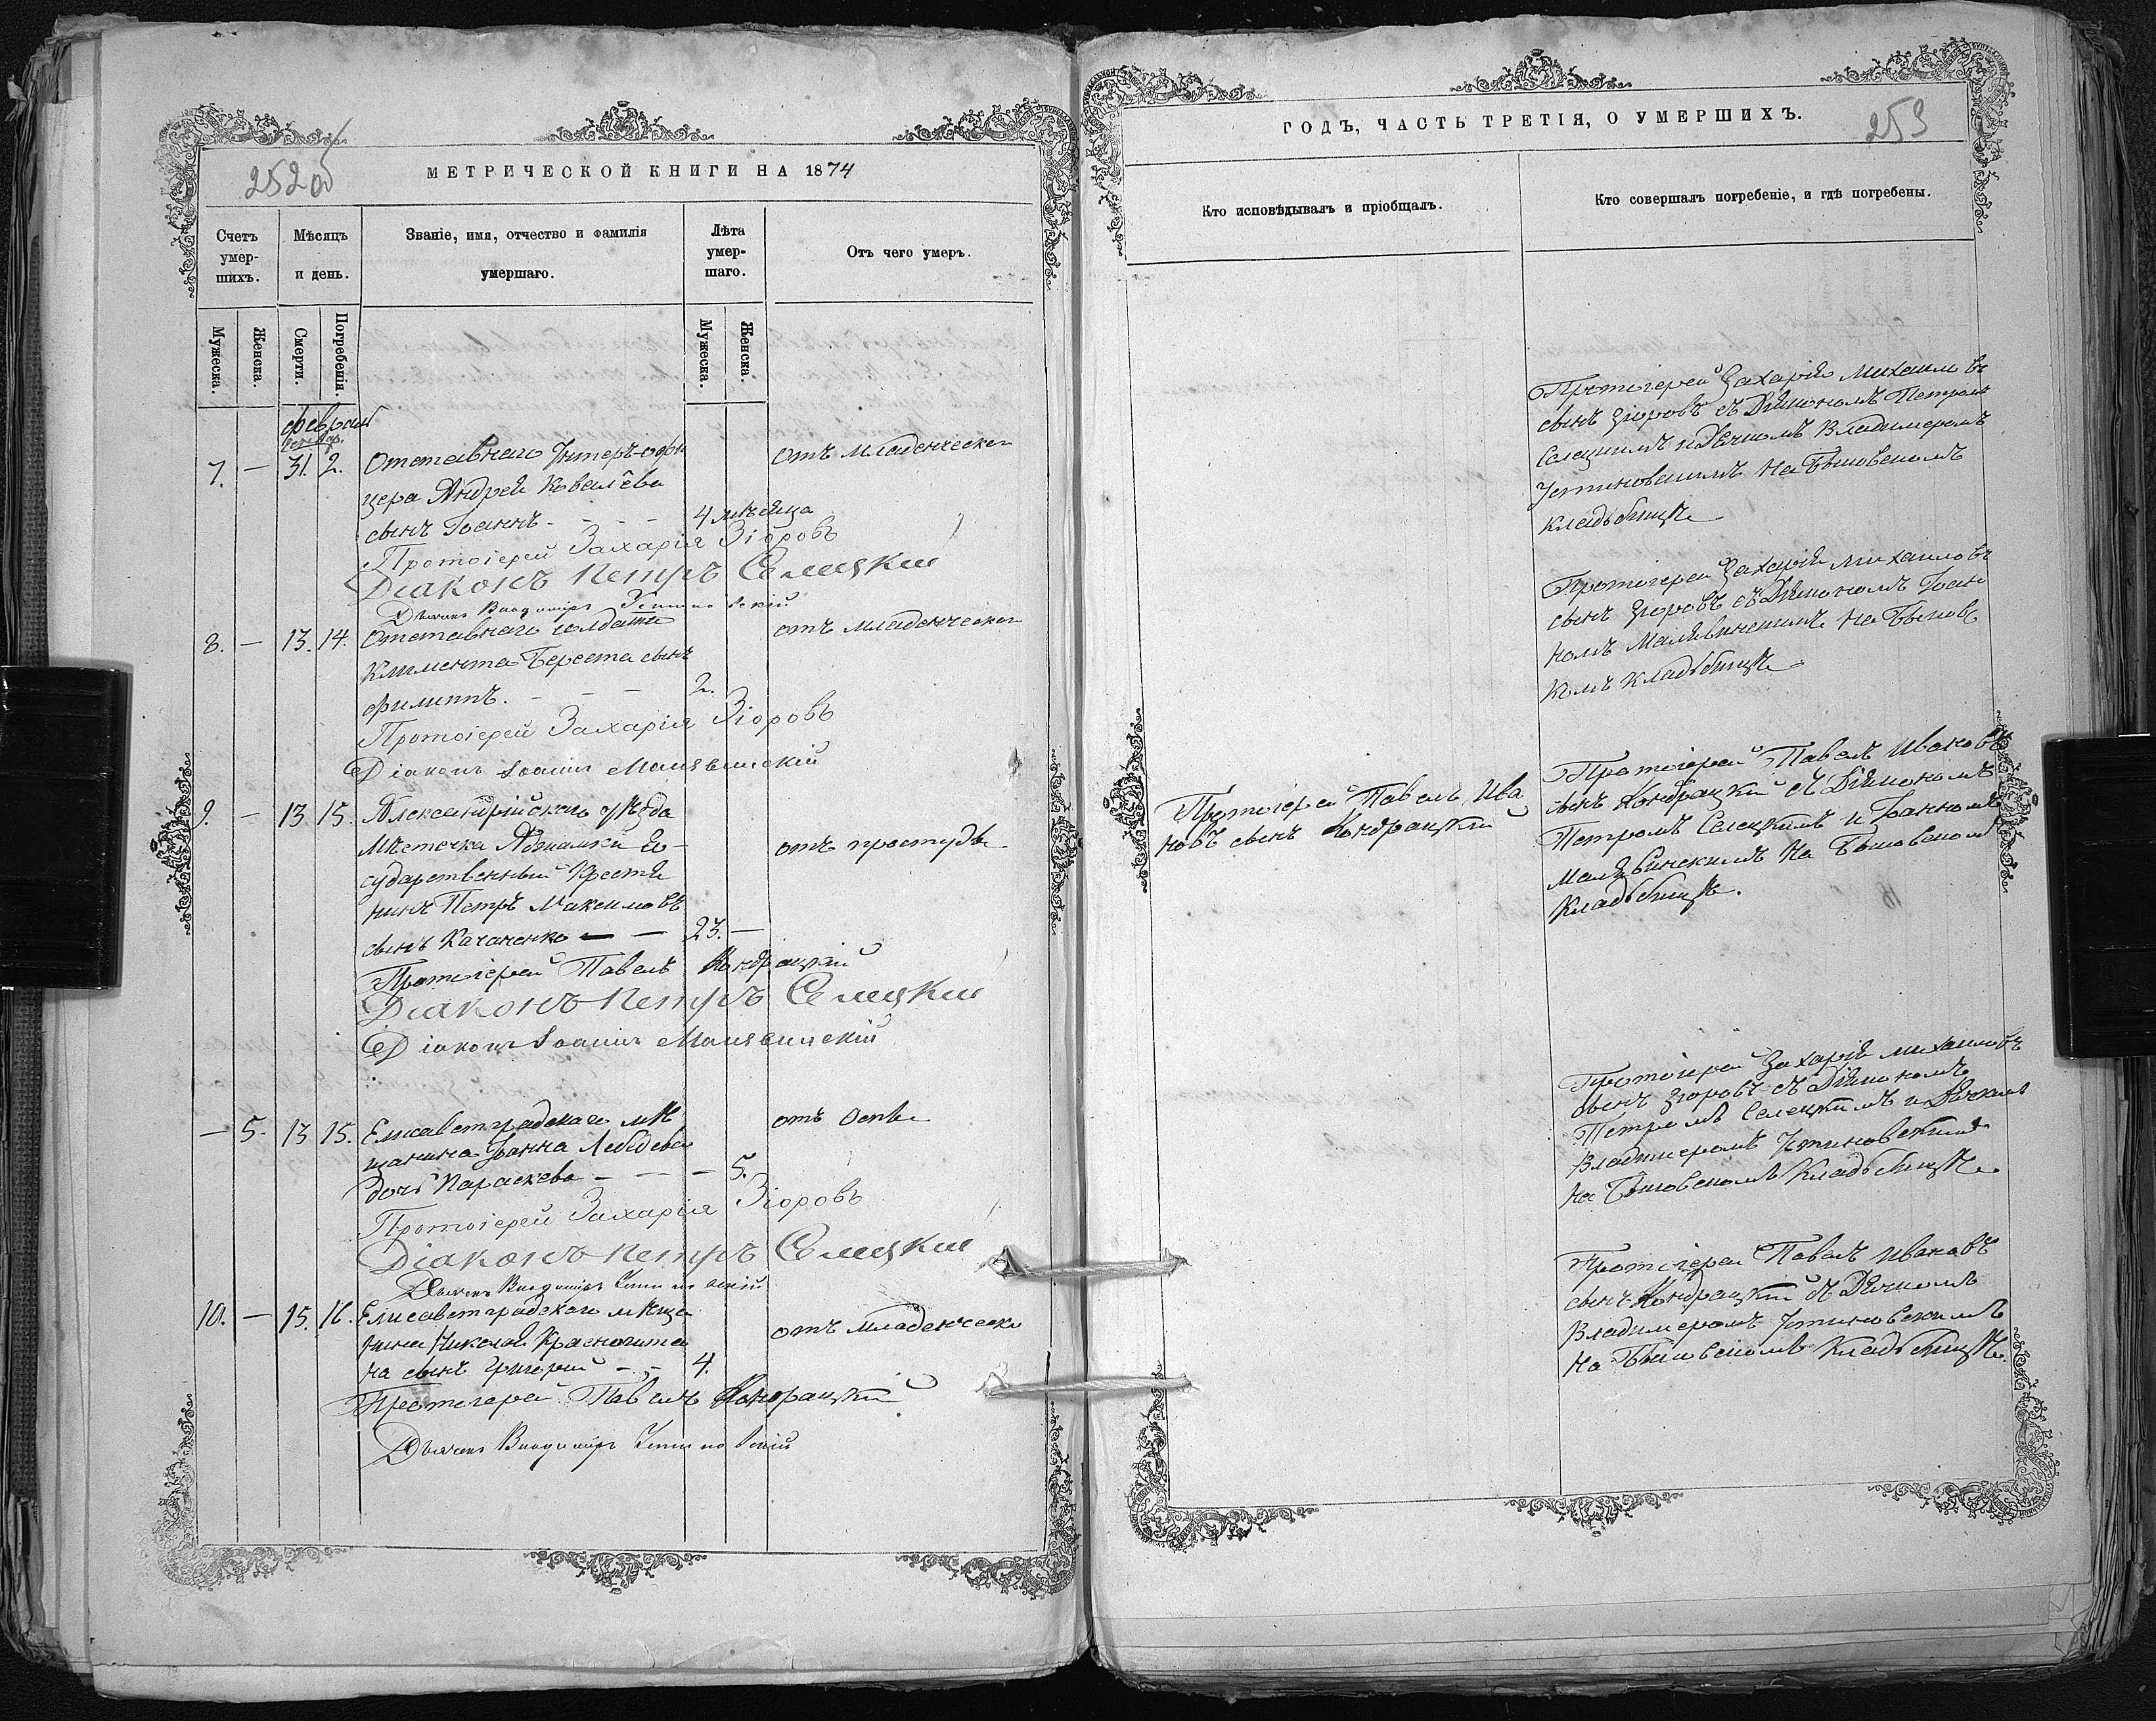 252 об
МЕТРИЧЕСКОЙ КНИГИ НА 1874
Счетъ умер-шихъ.
Мѣсяцъ и день.
Званіе, имя, отчество и фамилія умершаго.
Лѣта умер-шаго.
Отъ чего умеръ.
Мужеска.
Женска.
Смерти.
Погребенія.
Мужеска.
Женска.
Февраль
7. — 31. 2. Отставнаго Унтеръ-офи отъ младенческой
цера Андрея Ковалёва
сынъ Іоаннъ - - - 4 мѣсяца
Протоіерей Захарія Зіоровъ
Діаконъ Петръ Селецкій
Дьячекъ Владиміръ Устиновскій
8. — 13. 14. Отставнаго солдата отъ младенческой
Климента Береста сынъ
Филиппъ. - - - 2.
Протоіерей Захарія Зіоровъ
Діаконъ Іоаннъ Малявинскій
9. — 13 15. Александрійскаго уѣзда
мѣстечка Аджамки Го- отъ простуды
сударственный Крестья
нинъ Петръ Максимовъ
сынъ Качаненко — — 23. —
Протоіерей Павелъ Кондрацкій
Діаконъ Петръ Селецкій
Діаконъ Іоаннъ Малявинскій
— 5. 13 15. Елисаветградскаго мѣ отъ Оспы
щанина Іоанна Лебедева
дочь Параскева - - - 5.
Протоіерей Захарія Зіоровъ
Діаконъ Петръ Селецкій
Дьячекъ Владиміръ Устиновскій
10. — 15. 16. Елисаветградскаго мѣща отъ младенческой
нина Николая Краснокута
на сынъ Григорій - - 4.
Протоіерей Павелъ Кондрацкій
Дьячекъ Владиміръ Устиновскій
ГОДЪ, ЧАСТЬ ТРЕТІЯ, О УМЕРШИХЪ.
253
Кто исповѣдывалъ и пріобщалъ.
Кто совершалъ погребеніе, и гдѣ погребены.
Протоіерей Захарія Михаиловъ
сынъ Зіоровъ съ Діакономъ Петромъ
Селецкимъ и Дьячкомъ Владимеромъ
Устиновскимъ на Быковскомъ
кладьбищѣ
Протоіерей Захарія Михаиловъ
сынъ Зіоровъ съ Діакономъ Іоан
номъ Малявинскимъ на Быковс
комъ кладьбищѣ
Протоіерей Павелъ Ива
новъ сынъ Кондрацкій
Протоіерей Павелъ Ивановъ
сынъ Кондрацкій съ Діакономъ
Петромъ Селецкимъ и Іоанномъ
Малявинскимъ на Быковскомъ
Кладьбищѣ.
Протоіерей Захарія Михаиловъ
сынъ Зіоровъ съ Діакономъ
Петромъ Селецкимъ и Дьячкомъ
Владимеромъ Устиновскимъ
на Быковскомъ Кладьбищѣ.
Протоіерей Павелъ Ивановъ
сынъ Кондрацкій съ Дьячкомъ
Владимеромъ Устиновскимъ
на Быковскомъ Кладьбищѣ.